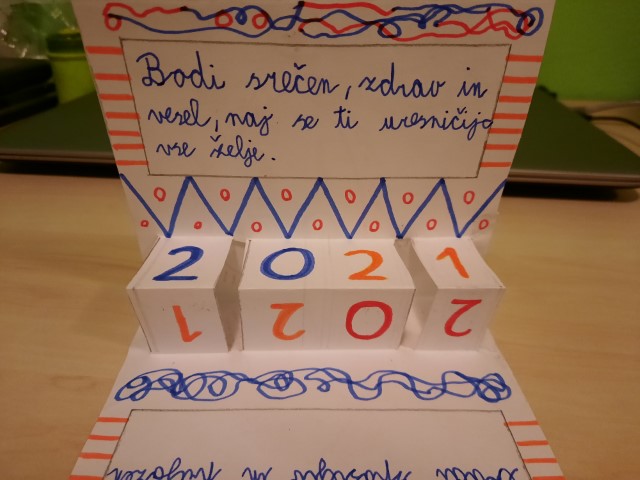 Bodi srečen, zdrav in
vesel, naj se ti uresničijo
vse želje.
2021
2021